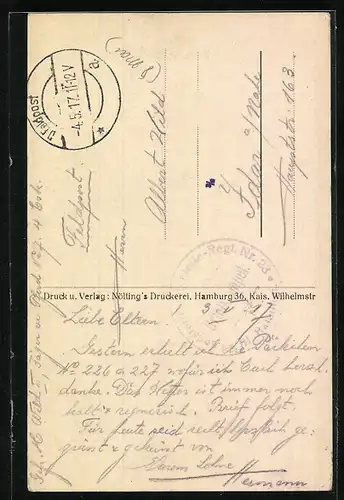 Feldpost
-4.5.17.11-12V
a.
Feldpost.
Herrn
Albert Wild
Idar a/Nahe
Hauptstr. 163.
Regt. Nr. 23
Druck u. Verlag: Nölting's Druckerei, Hamburg 36, Kais. Wilhelmstr
3 V 17
Liebe Eltern!
Gestern erhielt ich die Päckchen
No 226 u 227 wofür ich Euch herzl.
danke. Das Wetter ist immer noch
kalt & regnerisch. Brief folgt.
Für heute seid recht herzlich ge-
grüsst & geküsst von
Eurem Sohne
Hermann